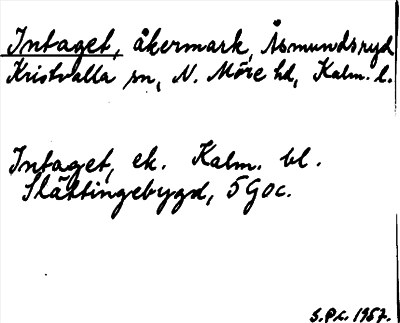 Intaget, åkermark, Åsmundsryd
Kristvalla sn, N. Möre hd, Kalm. l.
Intaget, ek. Kalm. bl.
Slättingebygd, 5G0c.
S.P.L. 1957.